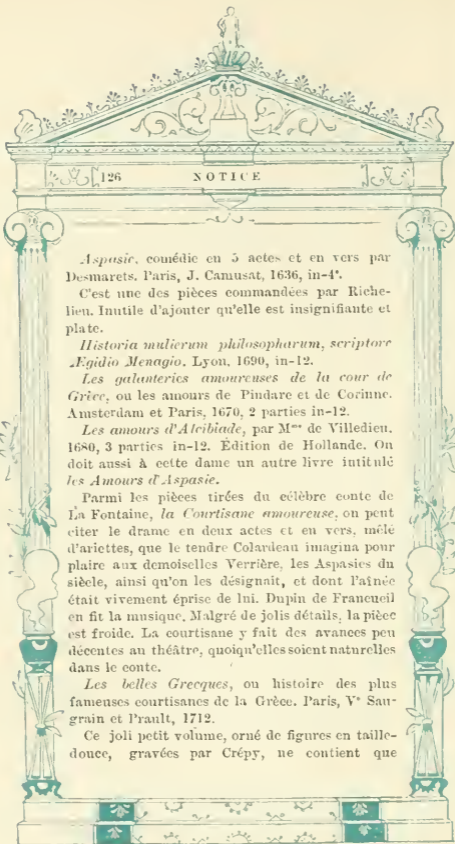 126 NOTICE
Aspasie, comédie en 5 actes et en vers par
Desmarets. Paris, J. Camusat, 1636, in-4°.
C'est une des pièces commandées par Riche-
lieu. Inutile d'ajouter qu'elle est insignifiante et
plate.
Historia mulierum philosopharum, scriptore
Ægidio Menagio. Lyon, 1690, in-12.
Les galanteries amoureuses de la cour de
Grèce, ou les amours de Pindare et de Corinne.
Amsterdam et Paris, 1670, 2 parties in-12.
Les amours d'Alcibiade, par Mme de Villedieu.
1680, 3 parties in-12. Édition de Hollande. On
doit aussi à cette dame un autre livre intitulé
les Amours d'Aspasie.
Parmi les pièces tirées du célèbre conte de
La Fontaine, la Courtisane amoureuse, on peut
citer le drame en deux actes et en vers, mêlé
d'ariettes, que le tendre Colardeau imagina pour
plaire aux demoiselles Verrière, les Aspasies du
siècle, ainsi qu'on les désignait, et dont l'aînée
était vivement éprise de lui. Dupin de Francueil
en fit la musique. Malgré de jolis détails, la pièce
est froide. La courtisane y fait des avances peu
décentes au théâtre, quoiqu'elles soient naturelles
dans le conte.
Les belles Grecques, ou histoire des plus
fameuses courtisanes de la Grèce. Paris, Ve Sau-
grain et Prault, 1712.
Ce joli petit volume, orné de figures en taille-
douce, gravées par Crépy, ne contient que